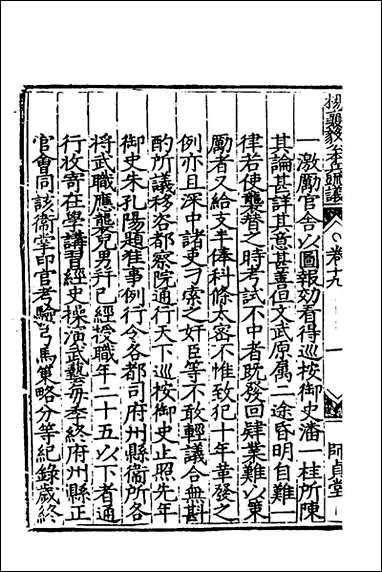 楊襄毅公本兵疏議 卷十九 一 師貞堂
一激勵官舍以圖報効看得巡按御史潘一桂所陳
其論甚詳其意甚善但文武原属二途昏明自難一
律若使襲替之時考試不中者既發回肄業難以策
勵者又給支半俸科條太密不惟致犯十年革發之
例亦且深中諸吏刁索之奸臣等不敢輕議合無斟
酌所議移咨都察院通行天下巡按御史止照先年
御史朱孔陽題准事例行令各都司府州縣衛所各
將武職應襲兒男并已經授職年二十五以下者通
行收寄在學講習經史操演武藝每季終府州縣正
官會同該衛掌印官考驗弓馬策略分等紀錄歲終